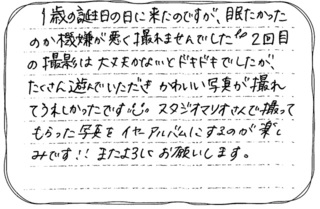 1歳の誕生日の日に来たのですが、眠たかった
のか機嫌が悪く撮れませんでした。2回目
の撮影は大丈夫かないとドキドキでしたが、
たくさん遊んでいただきかわいい写真が撮れ
てうれしかったです。スタジオマリオさんで撮って
もらった写真をイヤーアルバムにするのが楽し
みです!!またよろしくお願いします。